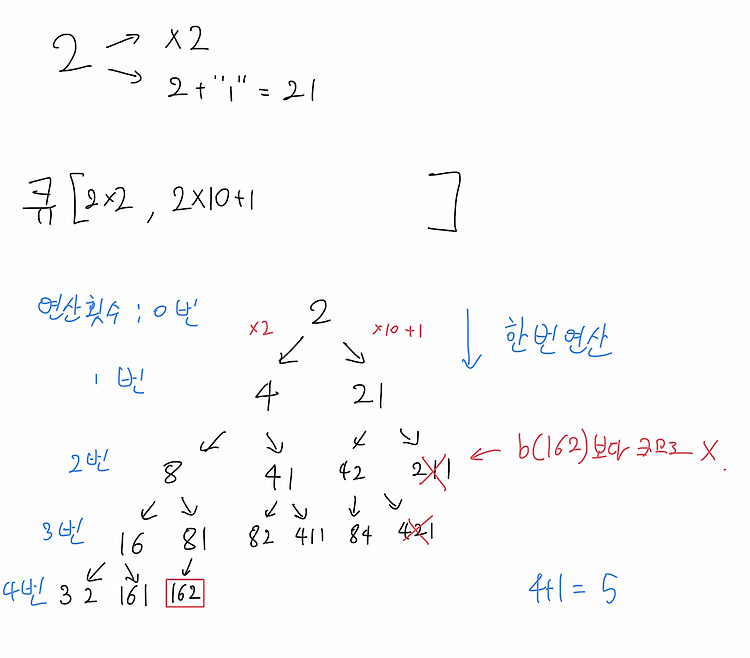 2 → ×2
→ 2+"1" = 21
큐 [2×2 , 2×10+1 ]
연산횟수 : 0번 2
×2 ×10+1 한번연산
1 번 4 21
2번 8 41 42 211 ← b(162)보다 크므로 X.
3번 16 81 82 411 84 421
4번 32 161 162 4+1 = 5